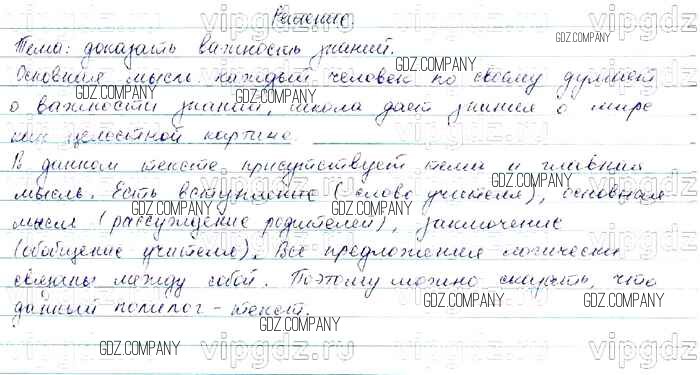 Решение
Тема: доказать важность знаний.
Основная мысль: каждый человек по своему думает
о важности знаний, школа дает знания о мире
как целостной картине.
В данном тексте присутствует тема и главная
мысль. Есть вступление (слово учителя), основная
мысль (рассуждение родителей), заключение
(обобщение учителя). Все предложения логически
связаны между собой. Поэтому можно сказать, что
данный полилог - текст.